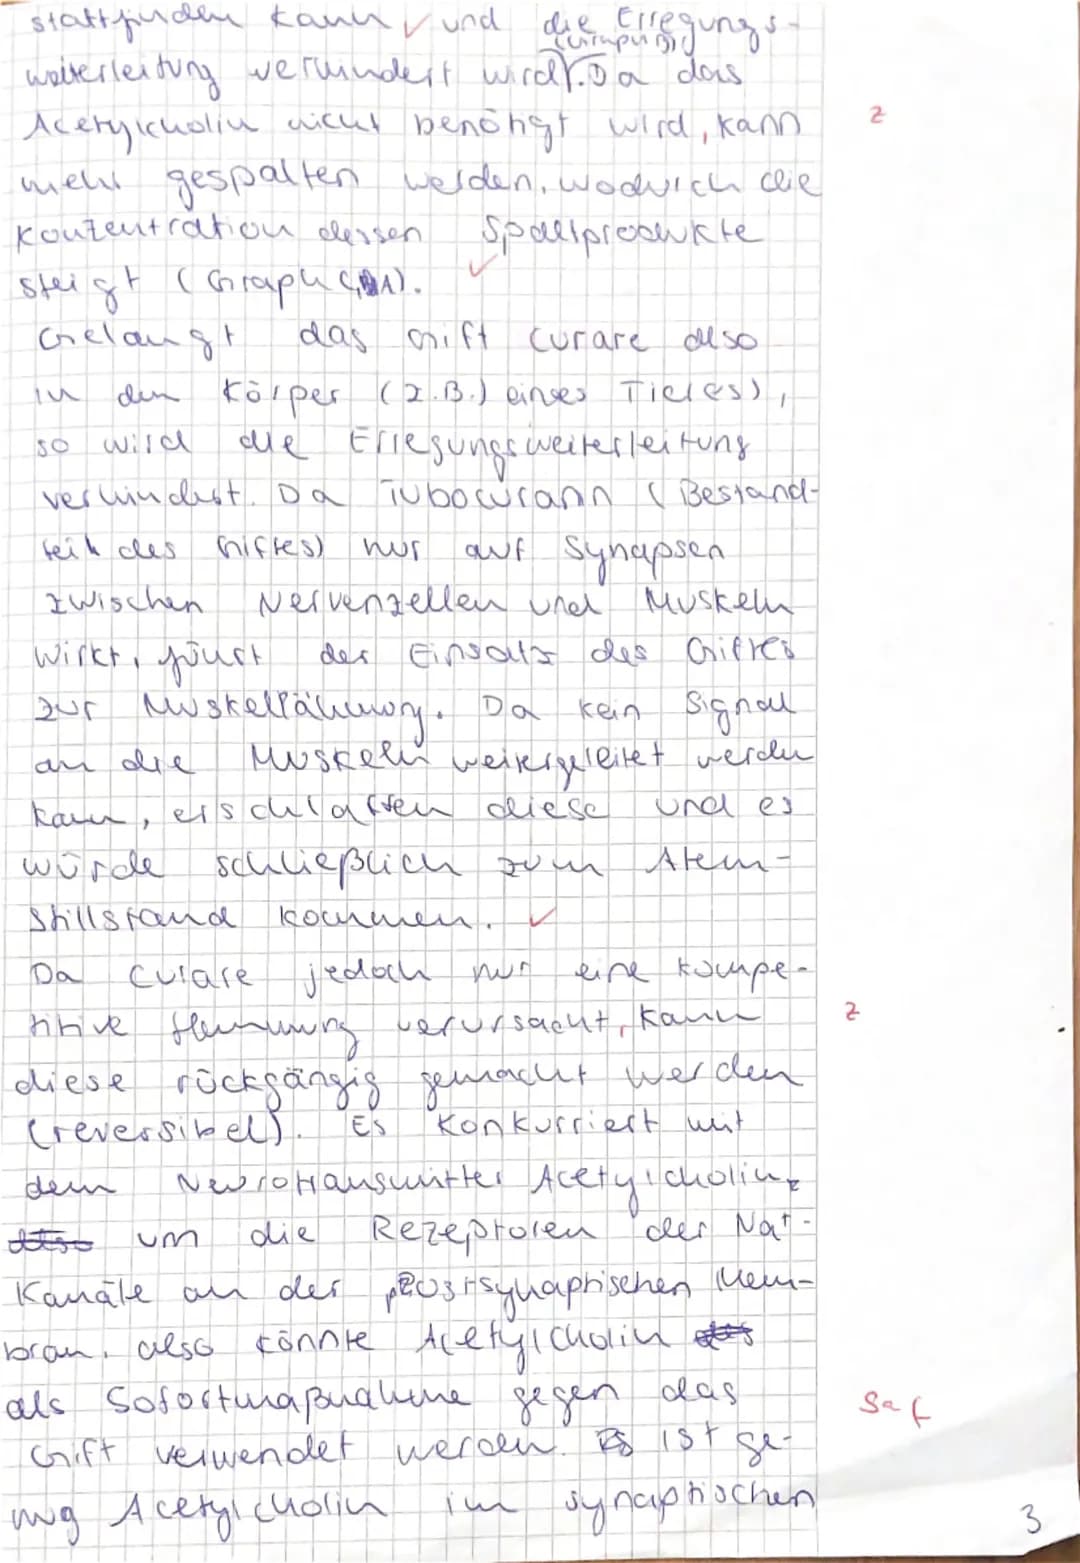 stattfinden kann ✓ und die Erregungs-
(Impuls)
weiterleitung verhindert wird. Da das
Acetylcholin nicht benötigt wird, kann z
mehr gespalten werden, wodurch die
Konzentration dessen Spaltprodukte
steigt (Graph A). ✓
Gelangt das Gift Curare also
in den Körper (z.B.) eines Tieres),
so wird die Erregungsweiterleitung
verhindert. Da Tubocurarin (Bestand-
teil des Giftes) nur auf Synapsen
zwischen Nervenzellen und Muskeln
wirkt, führt der Einsatz des Giftes
zur Muskellähmung. Da kein Signal
an die Muskeln weitergeleitet werden
kann, erschlaffen diese und es
würde schließlich zum Atem-
stillstand kommen. ✓
Da Curare jedoch nur eine kompe-
titive Hemmung verursacht, kann z
diese rückgängig gemacht werden
(reversibel). Es konkurriert mit
dem Neurotransmitter Acetylcholin
also um die Rezeptoren der Na+-
Kanäle an der postsynaptischen Mem-
bran, also könnte Acetylcholin das
als Sofortmaßnahme gegen das
Gift verwendet werden. Es ist ge-
nug Acetylcholin im synaptischen
3